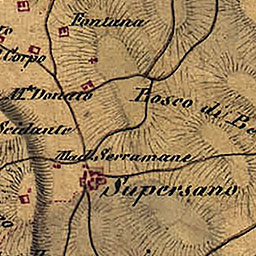 Fontana
Corpo
Mᵃ Donato
Bosco di Be
Scalante
Mad. Serramane
Supersano